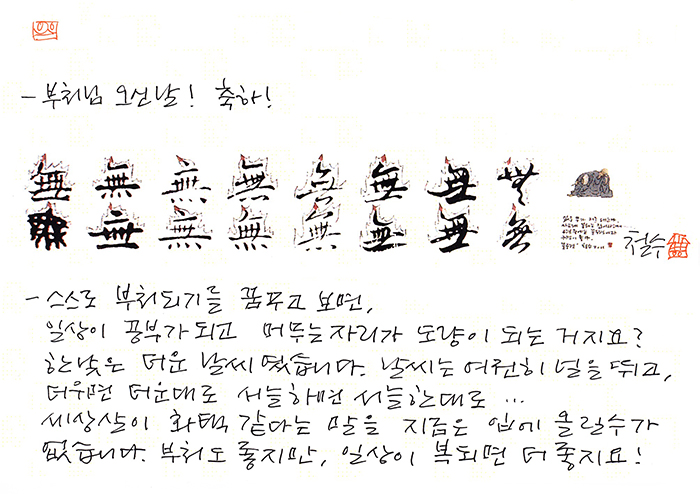 - 부처님 오신날! 축하!
無 無 無 無 無 無 無 無
無 無 無 無 無 無 無
철수
- 스스로 부처되기를 꿈꾸고 보면,
일상이 공부가 되고 머무는 자리가 도량이 되는 거지요?
한낮은 더운 날씨였습니다. 날씨는 여전히 널을 뛰고,
더우면 더운대로 서늘하면 서늘한대로 …
세상살이 화택 같다는 말을 지금은 입에 올릴수가
없습니다. 부처도 좋지만, 일상이 복되면 더 좋지요!